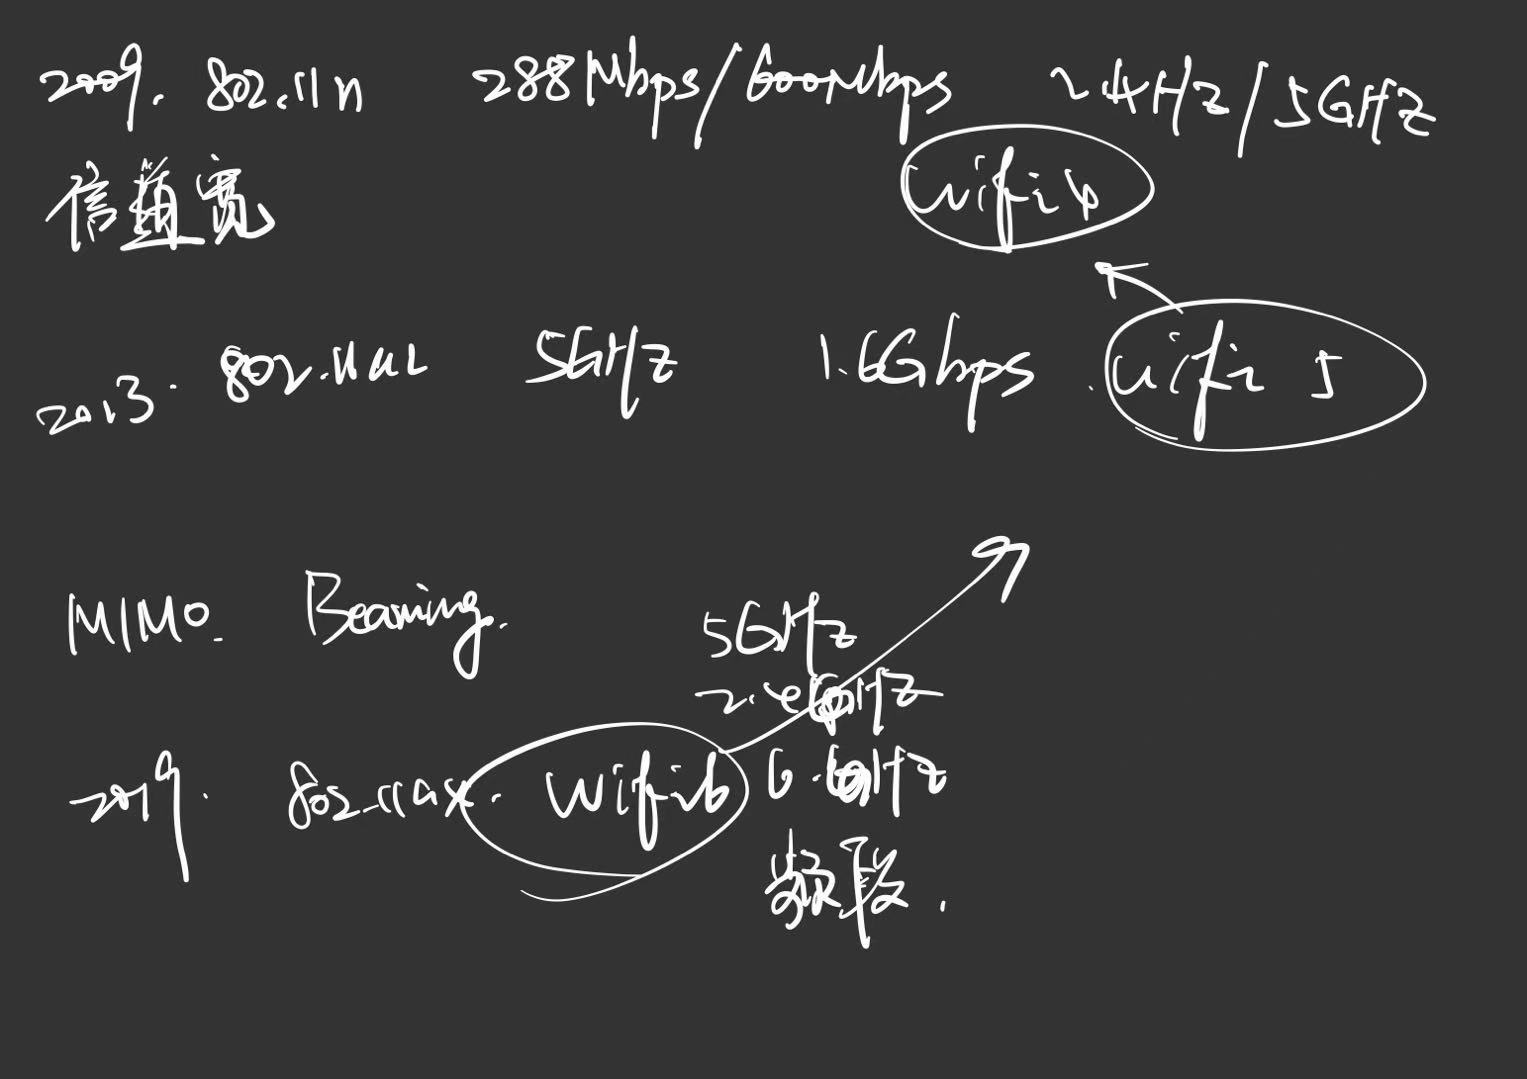 2009. 802.11n 288Mbps/600Mbps 2.4Hz/5GHz
信道宽 wifi6
2013. 802.11ac 5GHz 1.6Gbps. wifi 5
MIMO. Beaming.
5GHz
2.4GHz
2019. 802.11ax. wifi6 6.GHz
频段.